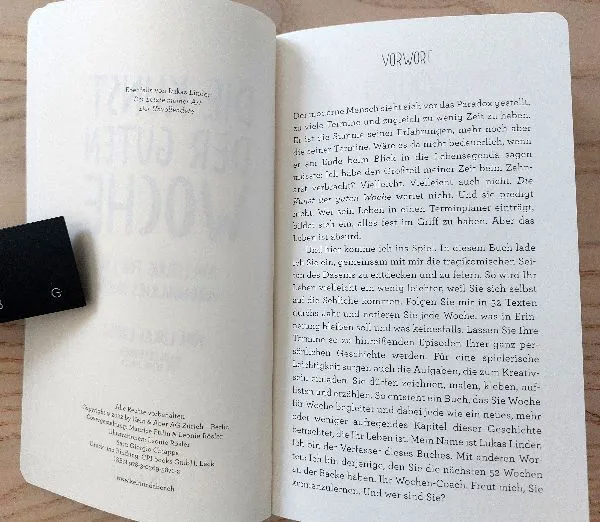 Ebenfalls von Lukas Linder
Der Letzte meiner Art
Der Unvollendete
Alle Rechte vorbehalten
Copyright © 2022 by Kein & Aber AG Zürich – Berlin
Covergestaltung: Maurice Ettlin & Leonie Rösler
Illustrationen: Leonie Rösler
Satz: Giorgio Chiappa
Druck und Bindung: CPI books GmbH, Leck
www.keinundaber.ch
VORWORT
Der moderne Mensch sieht sich vor das Paradox gestellt,
zu viele Termine und zugleich zu wenig Zeit zu haben.
Er ist die Summe seiner Erfahrungen, mehr noch aber
die seiner Termine. Wäre es da nicht bedauerlich, wenn
er am Ende beim Blick in die Lebensagenda sagen
müsste: Ich habe den Großteil meiner Zeit beim Zahn-
arzt verbracht? Vielleicht. Vielleicht auch nicht. Die
Kunst der guten Woche wertet nicht. Und sie predigt
nicht. Wer sein Leben in einen Terminplaner einträgt,
bildet sich ein, alles fest im Griff zu haben. Aber das
Leben ist absurd.
Und hier komme ich ins Spiel. In diesem Buch lade
ich Sie ein, gemeinsam mit mir die tragikomischen Sei-
ten des Daseins zu entdecken und zu feiern. So wird Ihr
Leben vielleicht ein wenig leichter, weil Sie sich selbst
auf die Schliche kommen. Folgen Sie mir in 52 Texten
durchs Jahr und notieren Sie jede Woche, was in Erin-
nerung bleiben soll und was keinesfalls. Lassen Sie Ihre
Termine so zu hinreißenden Episoden Ihrer ganz per-
sönlichen Geschichte werden. Für eine spielerische
Leichtigkeit sorgen auch die Aufgaben, die zum Kreativ-
sein einladen. Sie dürfen zeichnen, malen, kleben, auf-
listen und erzählen. So entsteht ein Buch, das Sie Woche
für Woche begleitet und dabei jede wie ein neues, mehr
oder weniger aufregendes Kapitel dieser Geschichte
betrachtet, die Ihr Leben ist. Mein Name ist Lukas Linder.
Ich bin der Verfasser dieses Buches. Mit anderen Wor-
ten: Ich bin derjenige, den Sie die nächsten 52 Wochen
an der Backe haben. Ihr Wochen-Coach. Freut mich, Sie
kennenzulernen. Und wer sind Sie?